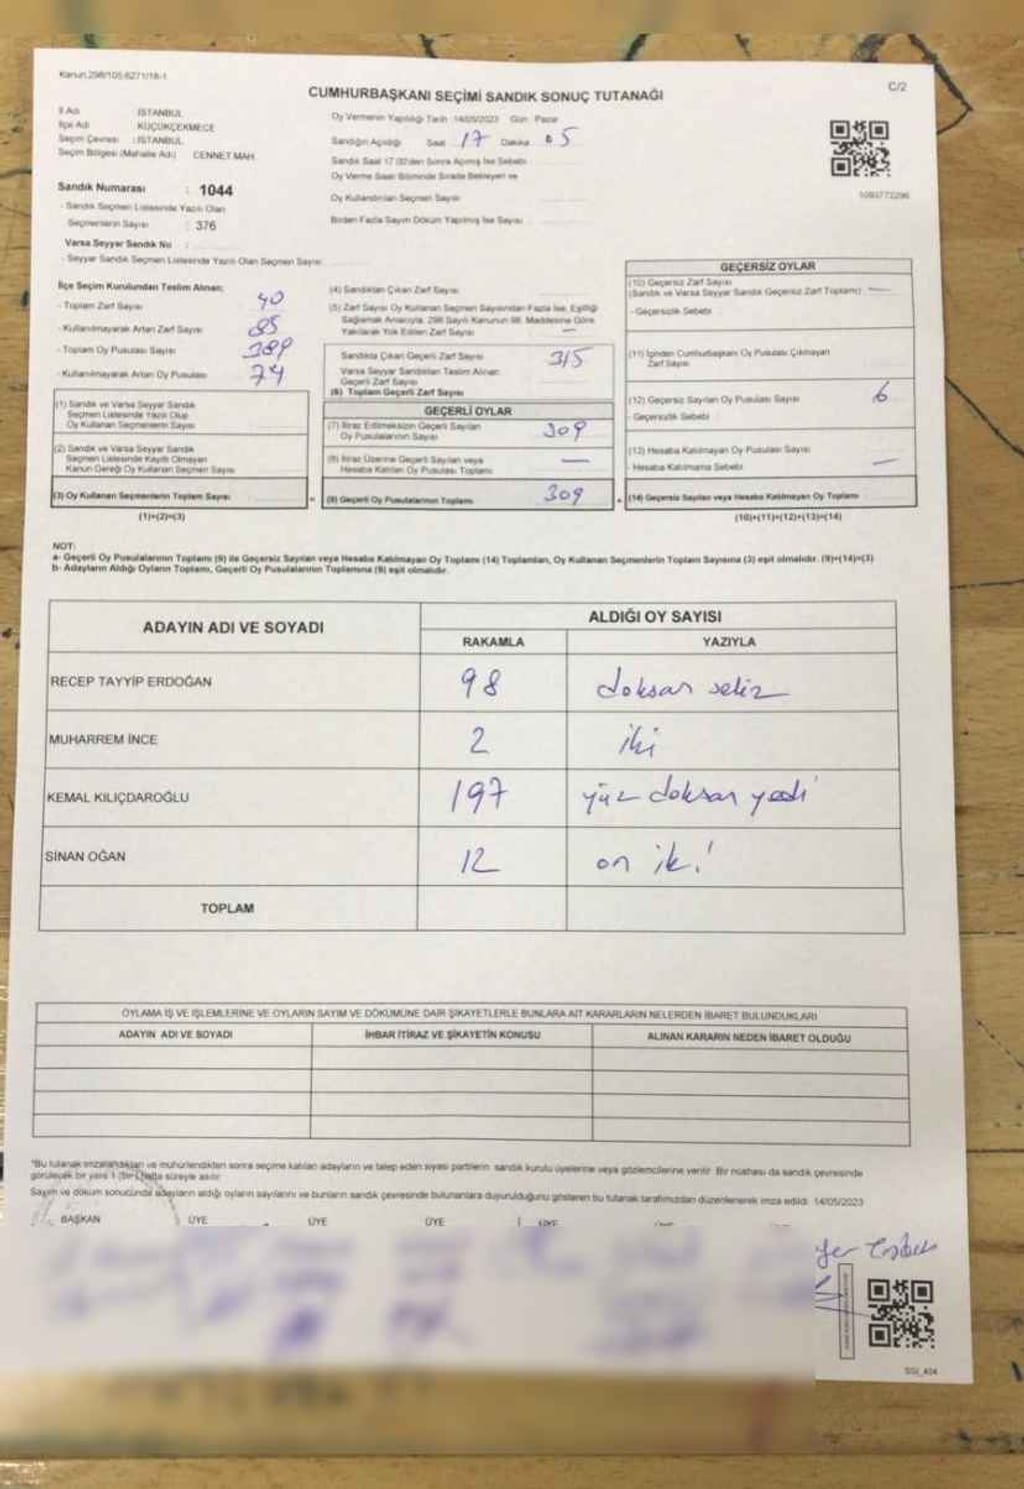 Kanun:298/105-6271/18-1
C/2
CUMHURBAŞKANI SEÇİMİ SANDIK SONUÇ TUTANAĞI
İl Adı : İSTANBUL
İlçe Adı : KÜÇÜKÇEKMECE
Seçim Çevresi : İSTANBUL
Seçim Bölgesi (Mahalle Adı) : CENNET MAH.
Oy Vermenin Yapıldığı Tarih 14/05/2023 Gün Pazar
Sandığın Açıldığı Saat 17 Dakika 05
Oy Kullandırılan Seçmen Sayısı
Birden Fazla Sayım Döküm Yapılmış İse Sayısı
Sandık Numarası : 1044
- Sandık Seçmen Listesinde Yazılı Olan
Seçmenlerin Sayısı : 376
Varsa Seyyar Sandık No :
- Seyyar Sandık Seçmen Listesinde Yazılı Olan Seçmen Sayısı
İlçe Seçim Kurulundan Teslim Alınan:
- Toplam Zarf Sayısı
- Kullanılmayarak Artan Zarf Sayısı 85
- Toplam Oy Pusulası Sayısı 389
- Kullanılmayarak Artan Oy Pusulası 74
(1) Sandık ve Varsa Seyyar Sandık
Seçmen Listesinde Yazılı Olup
Oy Kullanan Seçmenlerin Sayısı
(2) Sandık ve Varsa Seyyar Sandık
Seçmen Listesinde Kayıtlı Olmayan
Kanun Gereği Oy Kullanan Seçmen Sayısı
(3) Oy Kullanan Seçmenlerin Toplam Sayısı
(1)+(2)=(3)
(4) Sandıktan Çıkan Zarf Sayısı
(5) Zarf Sayısı Oy Kullanan Seçmen Sayısından Fazla İse, Eşitliği
Sağlamak Amacıyla, 298 Sayılı Kanunun 98. Maddesine Göre
Yakılarak Yok Edilen Zarf Sayısı —
Sandıkta Çıkan Geçerli Zarf Sayısı 315
Varsa Seyyar Sandıktan Teslim Alınan
Geçerli Zarf Sayısı
(6) Toplam Geçerli Zarf Sayısı
GEÇERLİ OYLAR
(7) İtiraz Edilmeksizin Geçerli Sayılan
Oy Pusulalarının Sayısı 309
(8) İtiraz Üzerine Geçerli Sayılan veya
Hesaba Katılan Oy Pusulası Toplamı —
(9) Geçerli Oy Pusulalarının Toplamı 309
GEÇERSİZ OYLAR
(10) Geçersiz Zarf Sayısı
(Sandık ve Varsa Seyyar Sandık Geçersiz Zarf Toplamı) —
- Geçersizlik Sebebi
(11) İçinden Cumhurbaşkanı Oy Pusulası Çıkmayan
Zarf Sayısı
(12) Geçersiz Sayılan Oy Pusulası Sayısı 6
- Geçersizlik Sebebi
(13) Hesaba Katılmayan Oy Pusulası Sayısı
- Hesaba Katılmama Sebebi —
(14) Geçersiz Sayılan veya Hesaba Katılmayan Oy Toplamı
(10)+(11)+(12)+(13)=(14)
NOT:
a- Geçerli Oy Pusulalarının Toplamı (9) ile Geçersiz Sayılan veya Hesaba Katılmayan Oy Toplamı (14) Toplamları, Oy Kullanan Seçmenlerin Toplam Sayısına (3) eşit olmalıdır. (9)+(14)=(3)
b- Adayların Aldığı Oyların Toplamı, Geçerli Oy Pusulalarının Toplamına (9) eşit olmalıdır.
ADAYIN ADI VE SOYADI
ALDIĞI OY SAYISI
RAKAMLA YAZIYLA
RECEP TAYYİP ERDOĞAN 98 doksan sekiz
MUHARREM İNCE 2 iki
KEMAL KILIÇDAROĞLU 197 yüz doksan yedi
SİNAN OĞAN 12 on iki
TOPLAM
OYLAMA İŞ VE İŞLEMLERİNE VE OYLARIN SAYIM VE DÖKÜMÜNE DAİR ŞİKAYETLERLE BUNLARA AİT KARARLARIN NELERDEN İBARET BULUNDUKLARI
ADAYIN ADI VE SOYADI İHBAR İTİRAZ VE ŞİKAYETİN KONUSU ALINAN KARARIN NEDEN İBARET OLDUĞU
"Bu tutanak imzalandıktan ve mühürlendikten sonra seçime katılan adayların ve talep eden siyasi partilerin sandık kurulu üyelerine veya gözlemcilerine verilir. Bir nüshası da sandık çevresinde
görülecek bir yere 1 (bir) hafta süreyle asılır.
Sayım ve döküm sonucunda adayların aldığı oyların sayılarını ve bunların sandık çevresinde bulunanlara duyurulduğunu gösteren bu tutanak tarafımızdan düzenlenerek imza edildi. 14/05/2023
BAŞKAN ÜYE ÜYE ÜYE ÜYE